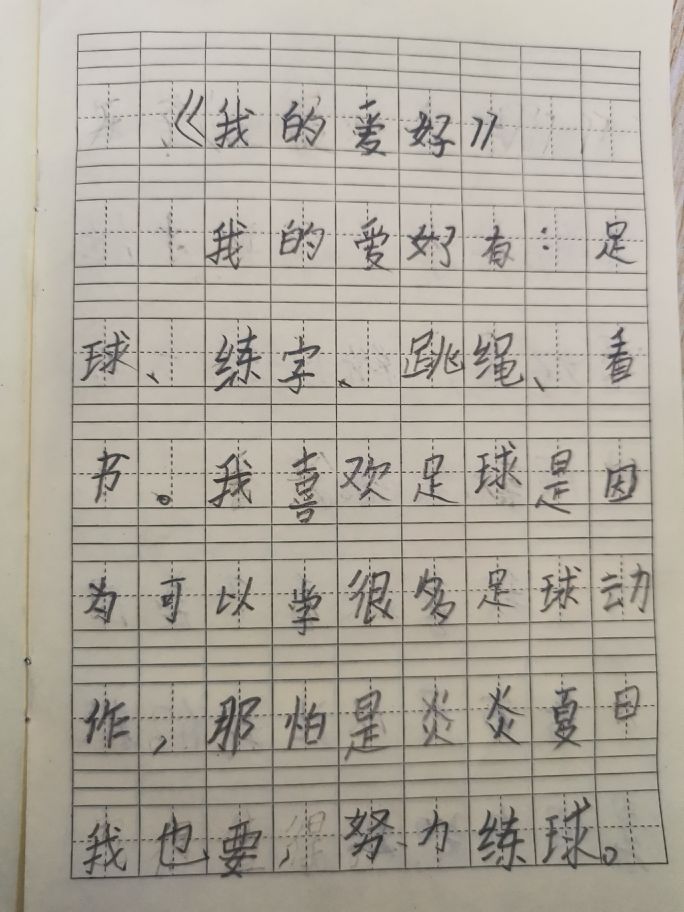 《我的爱好》
我的爱好有：足
球、练字、跳绳、看
书。我喜欢足球是因
为可以学很多足球动
作，那怕是炎炎夏日
我也要努力练球。